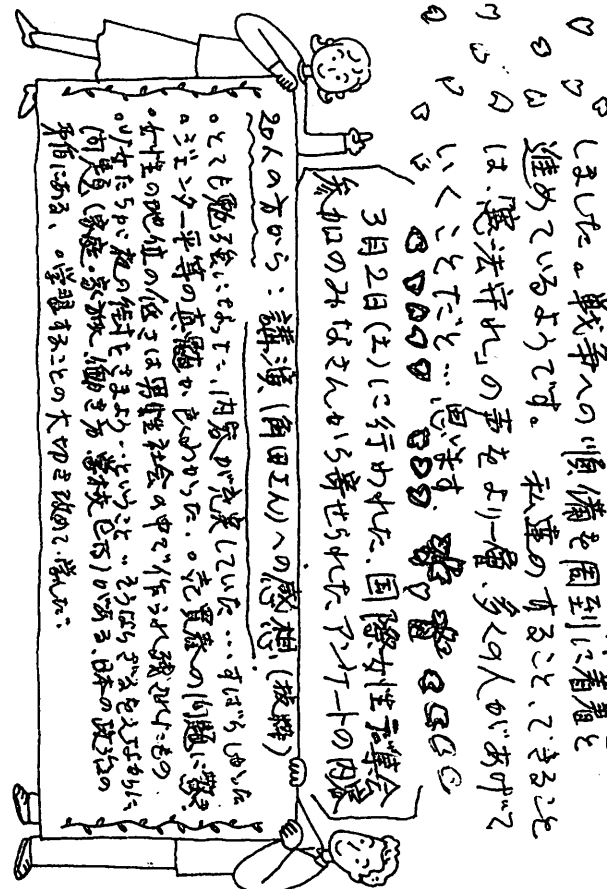 しました。戦争への準備を周到に着着と
進めているようです。 私達のすること、できること
は、「憲法守れ」の声をより一層、多くの人があげて
いくことだと…思います。
3月2日(土)に行われた、国際女性デー集会
参加のみなさんから寄せられたアンケートの内容
20人の方から：講演(角田さん)への感想(抜粋)
。とても勉強になった、内容が充実していた…すばらしかった
。ジェンダー平等の真髄がよくわかった。。売買春への問題に驚き
。女性の地位の低さは男性社会の中で作られ残されたもの
。少女たちが
問題(家庭・家族、働き方、学校、 )がある、日本の政治の
責任にある、。学習することの大切さ改めて学んだ：